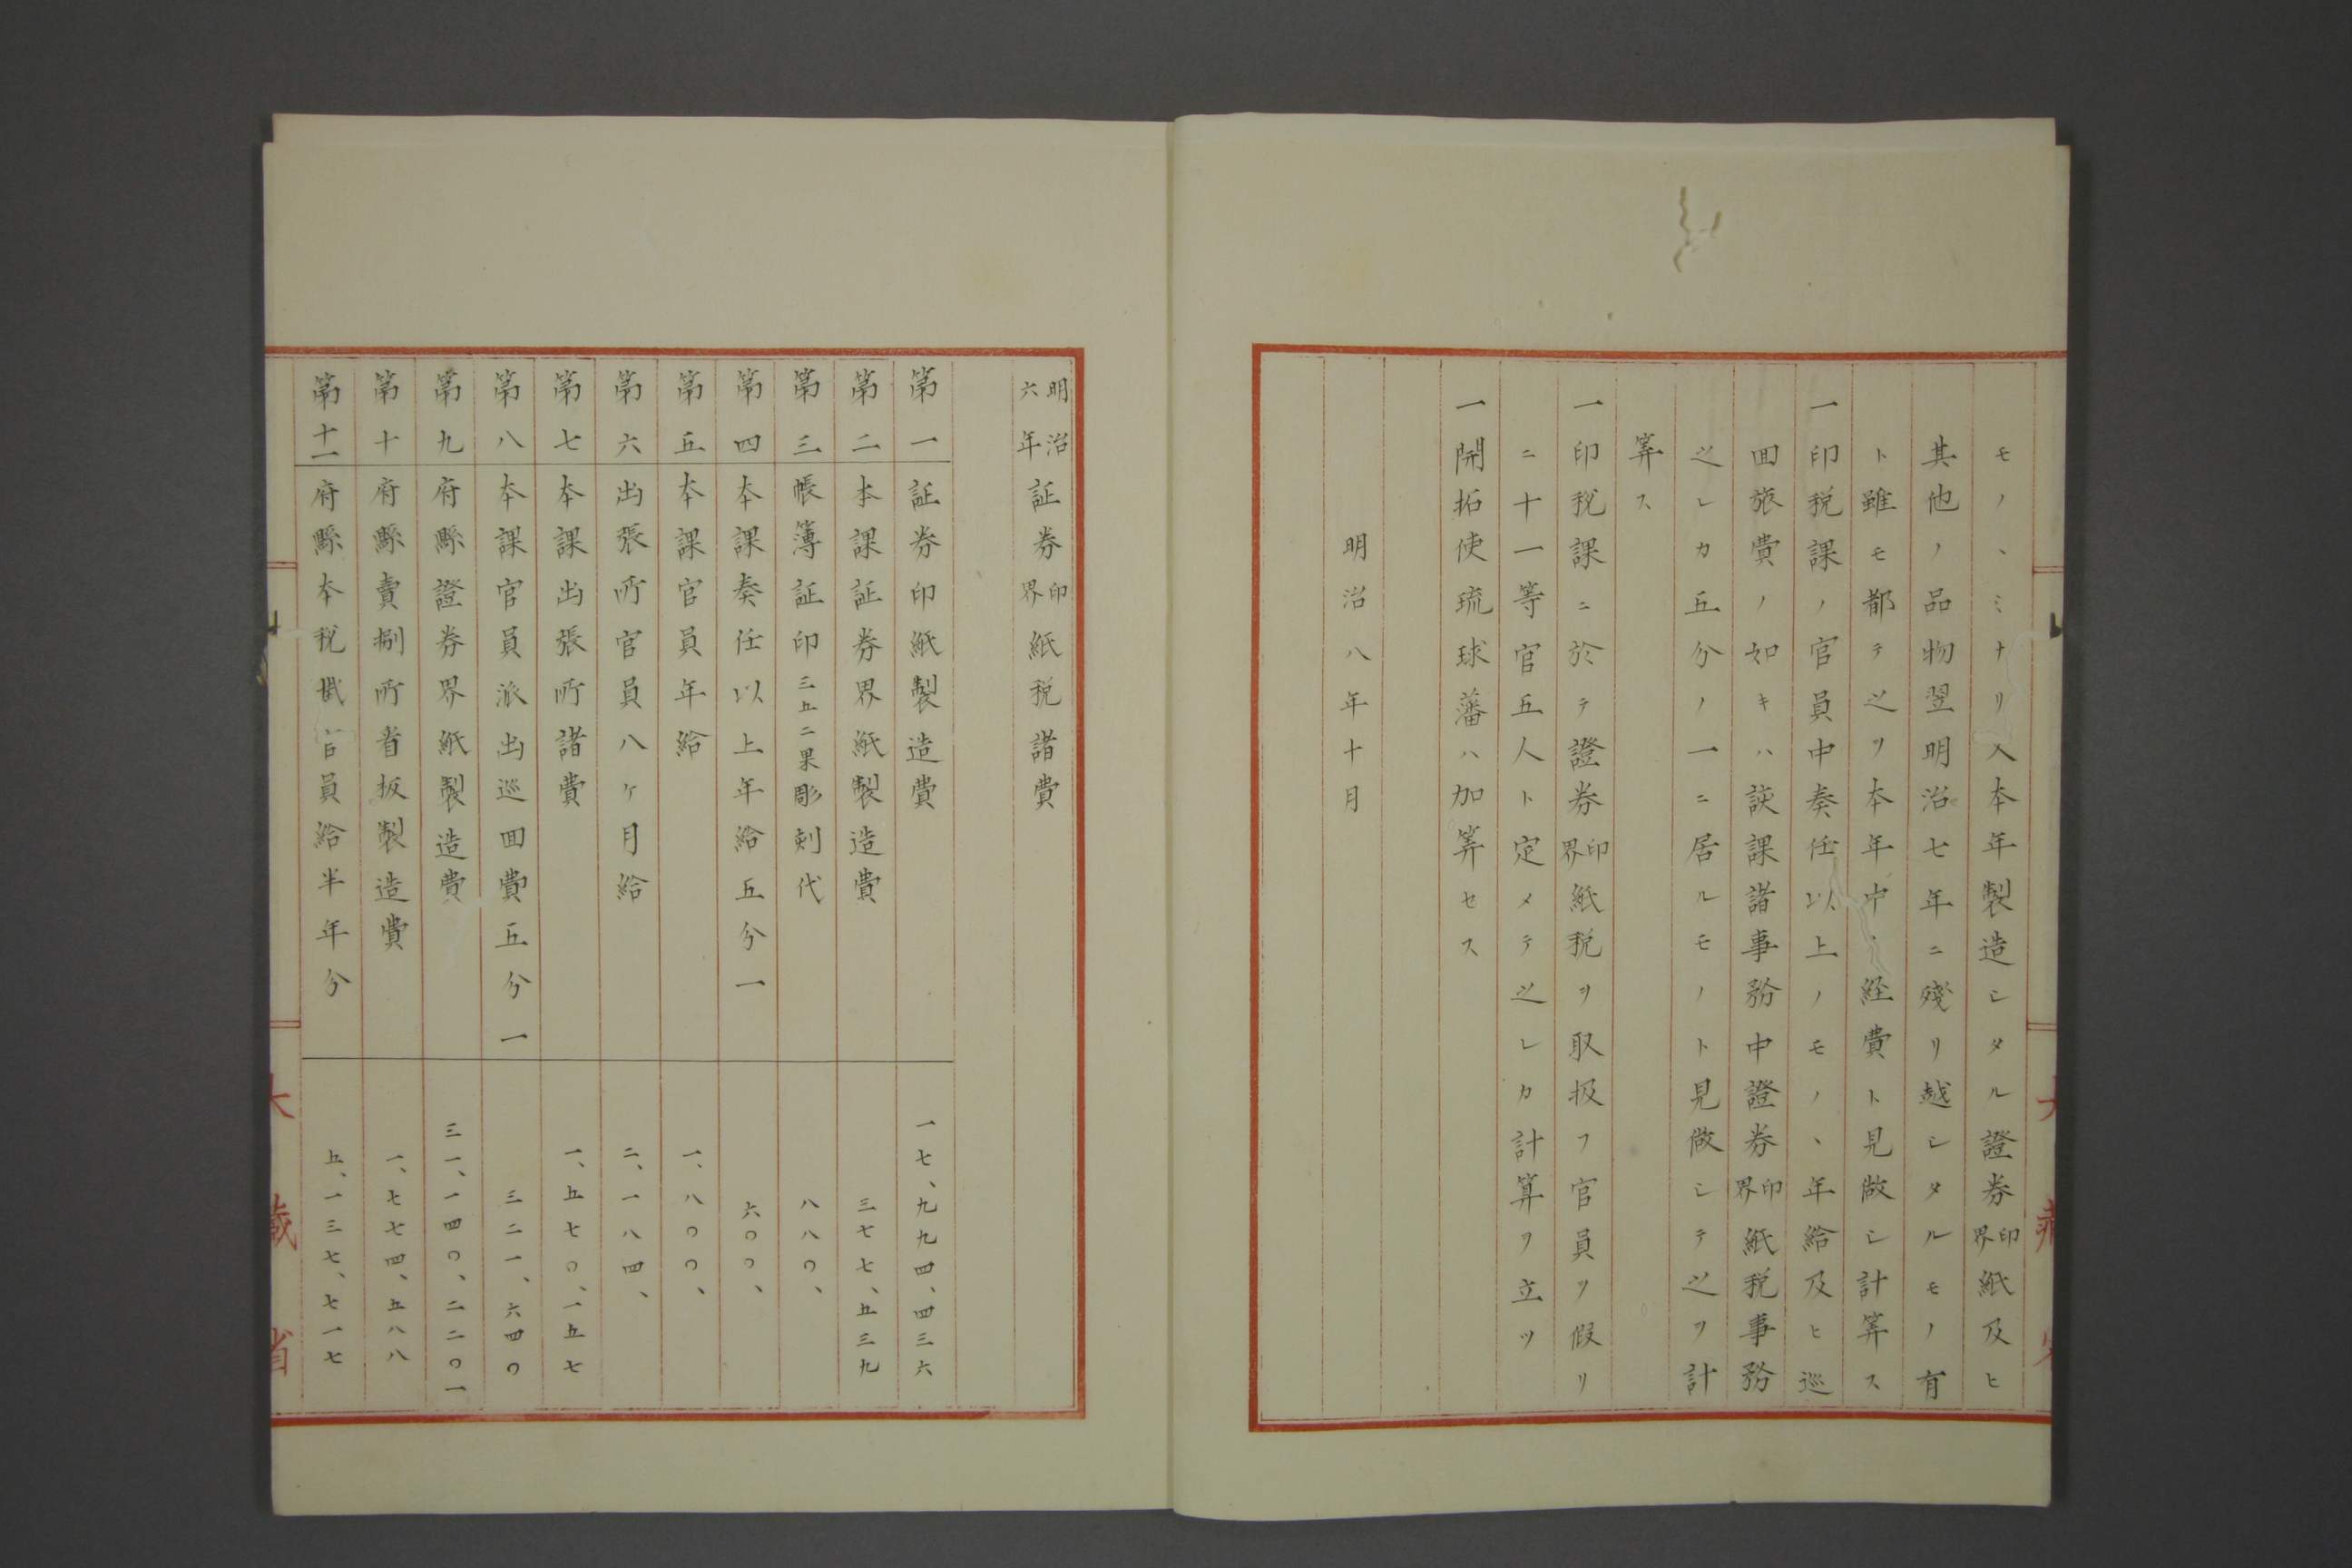 モノヽミナリ入本年製造シタル證券印界紙及ヒ
其他ノ品物翌明治七年ニ殘リ越シタルモノ有
ト雖モ都テ之ヲ本年中ノ経費ト見做シ計筭ス
一印税課ノ官員中奏任以上ノモノヽ年給及ヒ巡
囬旅費ノ如キハ該課諸事務中證券印界紙税事務
之レカ五分ノ一ニ居ルモノト見做シテ之ヲ計
筭ス
一印税課ニ於テ證券印界紙税ヲ取扱フ官員ヲ假リ
ニ十一等官五人ト定メテ之レカ計算ヲ立ツ
一開拓使琉球藩ハ加筭セス
明治八年十月
明治六年証券印界紙税諸費
第一 証券印紙製造費 一七、九九四、四三六
第二 本課証券界紙製造費 三七七、五三九
第三 帳簿証印三五二果彫刻代 八八〇、
第四 本課奏任以上年給五分一 六〇〇、
第五 本課官員年給 一、八〇〇、
第六 出張所官員八ケ月給 二、一八四、
第七 本課出張所諸費 一、五七〇、一五七
第八 本課官員派出巡囬費五分一 三二一、六四〇
第九 府縣證券界紙製造費 三一、一四〇、二二〇一
第十 府縣賣捌所看板製造費 一、七七四、五八八
第十一 府縣本税掛官員給半年分 五、一三七、七一七
大藏省